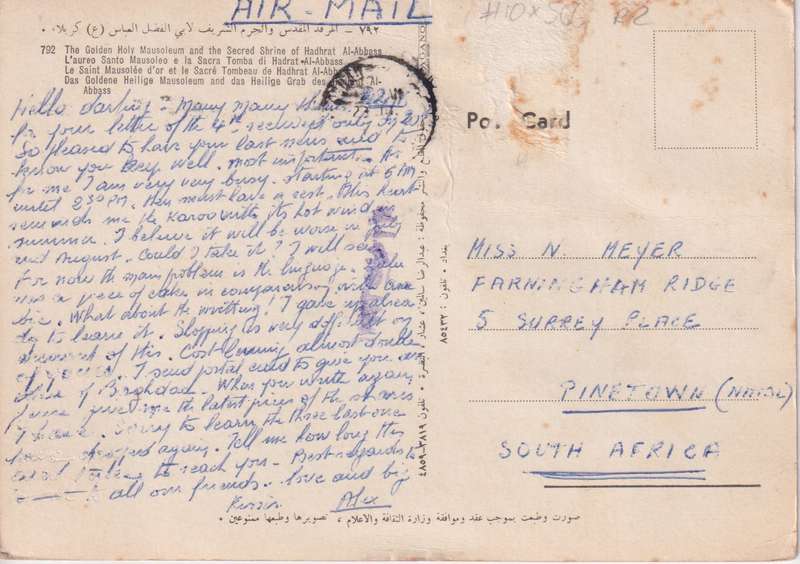 AIR-MAIL
#10 x 50
٧٩٢ – المرقد المقدس والحرم الشريف لابي الفضل العباس (ع) كربلاء.
792 The Golden Holy Mausoleum and the Secred Shrine of Hadhrat Al-Abbass
L'aureo Santo Mausoleo e la Sacra Tomba di Hadrat Al-Abbass
Le Saint Mausolée d'or et le Sacré Tombeau de Hadhrat Al-Abbass
Das Goldene Heilige Mausoleum und das Heilige Grab des Al-
Abbass
Hello darling – Many many
for your letter of the 4th received only on
So pleased to have your last news and to
know you keep well. most important. As
for me I am very very busy. starting at 5 AM
until 2 30 PM. then must have a rest. This
reminds me the Karoo with its hot wind in
summer. I believe it will be worse in July
and August. Could I take it? I will see.
For now the main problem is the language.
was a piece of cake in comparison with
bic. What about the writting! I gave up alrea
dy to learn it. Slopping as very difficult on
account of this. Cost living almost double
of I send postal card to give you an
idea of Baghdad. When you write again
please give me the latest prices of the shares
I have. Sorry to learn the three last one
have dropped again. Tell me how long this
card takes to reach you – Best regards to
all our friends. love and big
Kisses. Alex
Post Card
MISS N. MEYER
FARNINGHAM RIDGE
5 SURREY PLACE
PINETOWN (NATAL)
SOUTH AFRICA
بغداد – تلفون : ٨٥٤٣٢
صورت وطبعت بموجب عقد وموافقة وزارة الثقافة والاعلام ، تصويرها وطبعها ممنوعين .